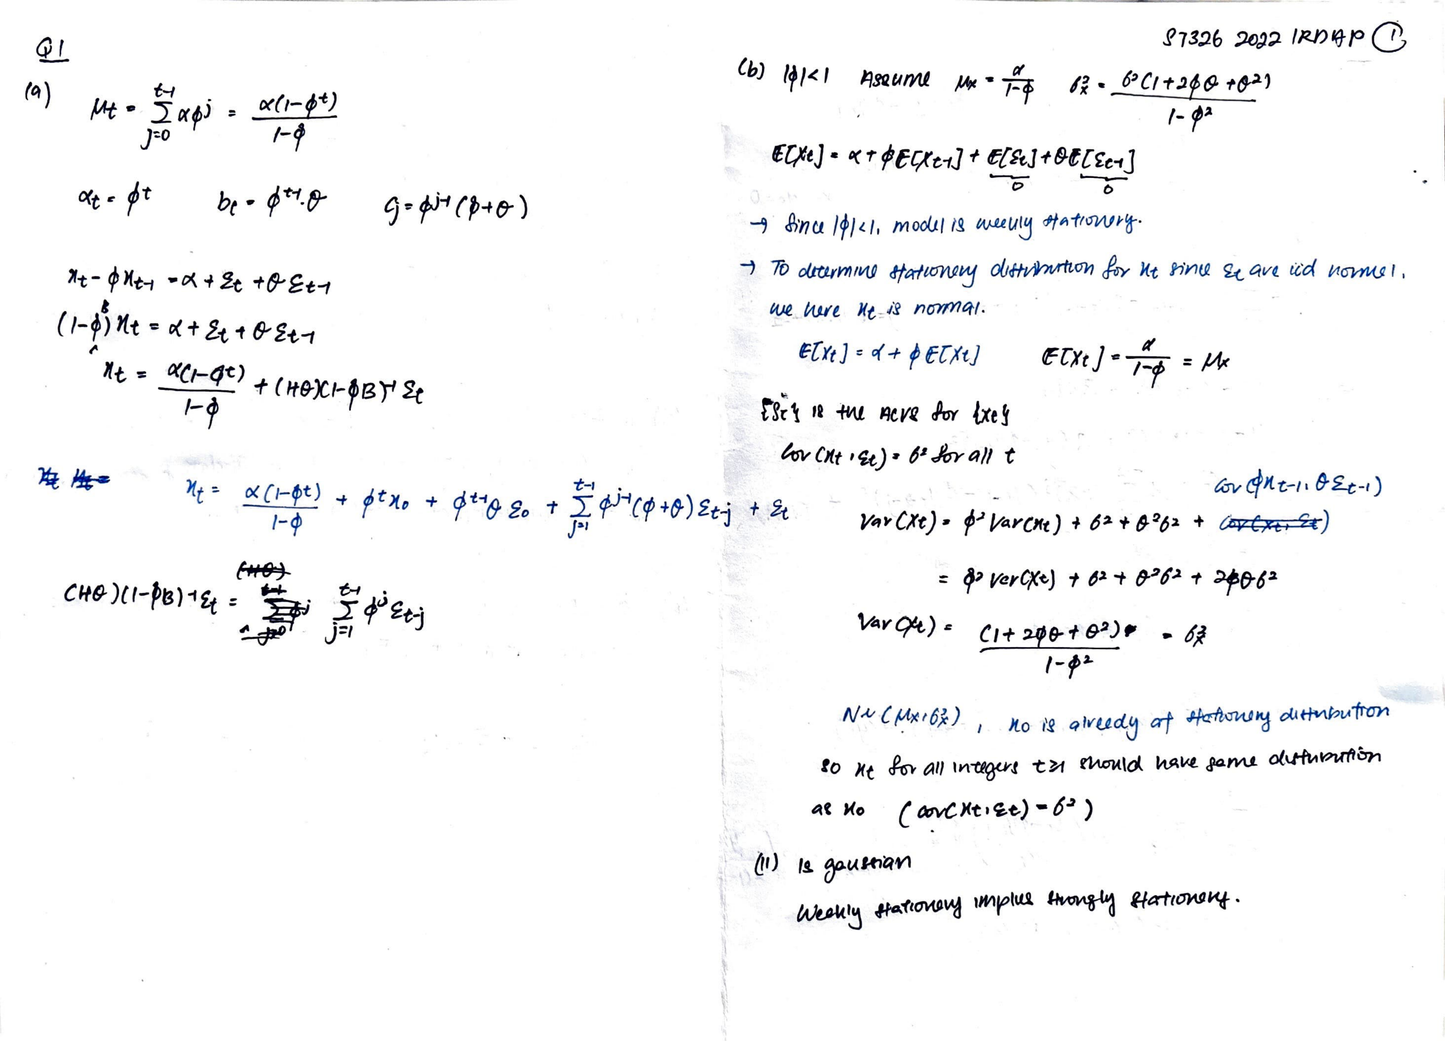 ST326 2022 IRDAP ①
Q1
(a) μt = Σ_{j=0}^{t-1} αφ^j = α(1-φ^t) / 1-φ
αt = φ^t bt = φ^{t-1}.θ Cj = φ^{j-1}(φ+θ)
xt - φxt-1 = α + εt + θεt-1
(1-φB)xt = α + εt + θεt-1
xt = α(1-φ^t) / 1-φ + (1+θ)(1-φB)^{-1} εt
xt = α(1-φ^t) / 1-φ + φ^t x0 + φ^{t-1}θ ε0 + Σ_{j=1}^{t-1} φ^{j-1}(φ+θ)εt-j + εt
(1+θ)(1-φB)^{-1} εt = Σ_{j=1}^{t-1} φ^j εt-j
(b) |φ|<1 Assume μx = α / 1-φ σx² = σ²(1+2φθ+θ²) / 1-φ²
E[Xt] = α + φE[Xt-1] + E[εt] + θE[εt-1]
0 0
→ Since |φ|<1, model is weekly stationery.
→ To determine stationery distribution for xt since εt are iid normal,
we have xt is normal.
E[Xt] = α + φE[Xt] E[Xt] = α / 1-φ = μx
is the ACVS for {xt}
Cov(xt, εt) = σ² for all t
cov(φxt-1, θεt-1)
Var(Xt) = φ² Var(xt) + σ² + θ²σ² +
= φ² Var(Xt) + σ² + θ²σ² + 2φθσ²
Var(Xt) = (1+2φθ+θ²) / 1-φ² = σx²
N~(μx, σx²), x0 is already at stationery distribution
so xt for all integers t≥1 should have same distribution
as x0 (cov(xt, εt) = σ²)
(ii) Is gaussian
Weekly stationery implies strongly stationery.